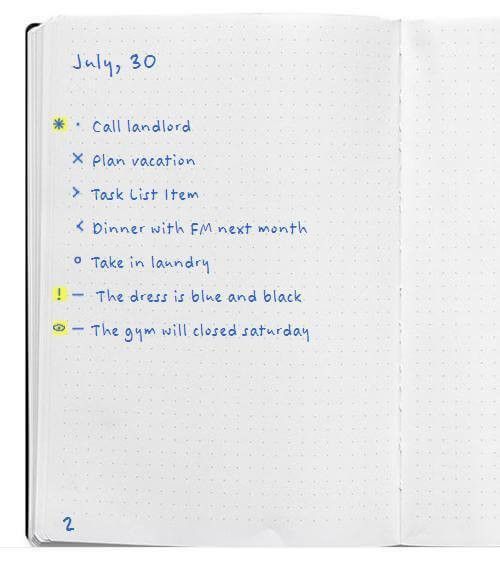 July, 30
* · Call landlord
× Plan vacation
> Task List Item
< Dinner with FM next month
o Take in laundry
! — The dress is blue and black
— The gym will closed saturday
2